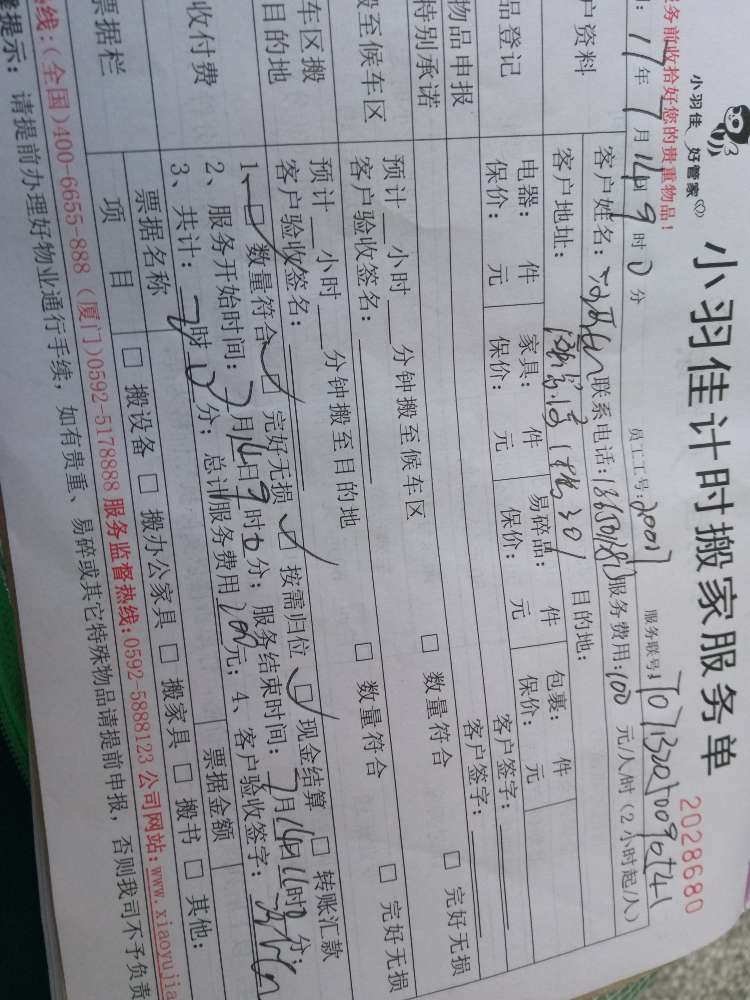 小羽佳 好管家
小羽佳计时搬家服务单
2028680
务前收拾好您的贵重物品!
17年7月14日9时0分 员工工号:20017 服务联号:
户资料 客户姓名: 联系电话: 服务费用:100 元/人/时(2小时起/人)
客户地址: 1栋301 目的地:
品登记 电器: 件 家具: 件 易碎品: 件 包裹: 件
保价: 元 保价: 元 保价: 元 保价: 元
物品申报 客户签字:
特别承诺 客户签字:
搬至候车区 预计 小时 分钟搬至候车区 □ 数量符合 □ 完好无损
客户验收签名:
车区搬 预计 小时 分钟搬至目的地 □ 数量符合 □ 完好无损
目的地 客户验收签名:
收付费 1、□ 数量符合 □ 完好无损 □ 按需归位 □ 现金结算 □ 转账汇款
2、服务开始时间:7月14日9时0分; 服务结束时间:7月14日11时0分;
3、共计:2时0分; 总计服务费用200元; 4、客户验收签字:
票据栏 票据名称 票据金额
项 目 □ 搬设备 □ 搬办公家具 □ 搬家具 □ 搬书 □ 其他:
线:(全国)400-6655-888 (厦门)0592-5178888 服务监督热线:0592-5888123 公司网站:www.xiaoyujia
提示: 请提前办理好物业通行手续, 如有贵重、易碎或其它特殊物品请提前申报, 否则我司不予负责